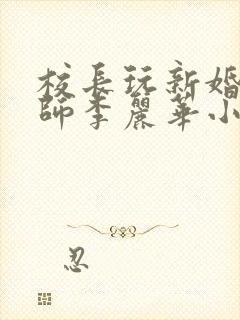 校長玩新婚
師李麗華小
忍